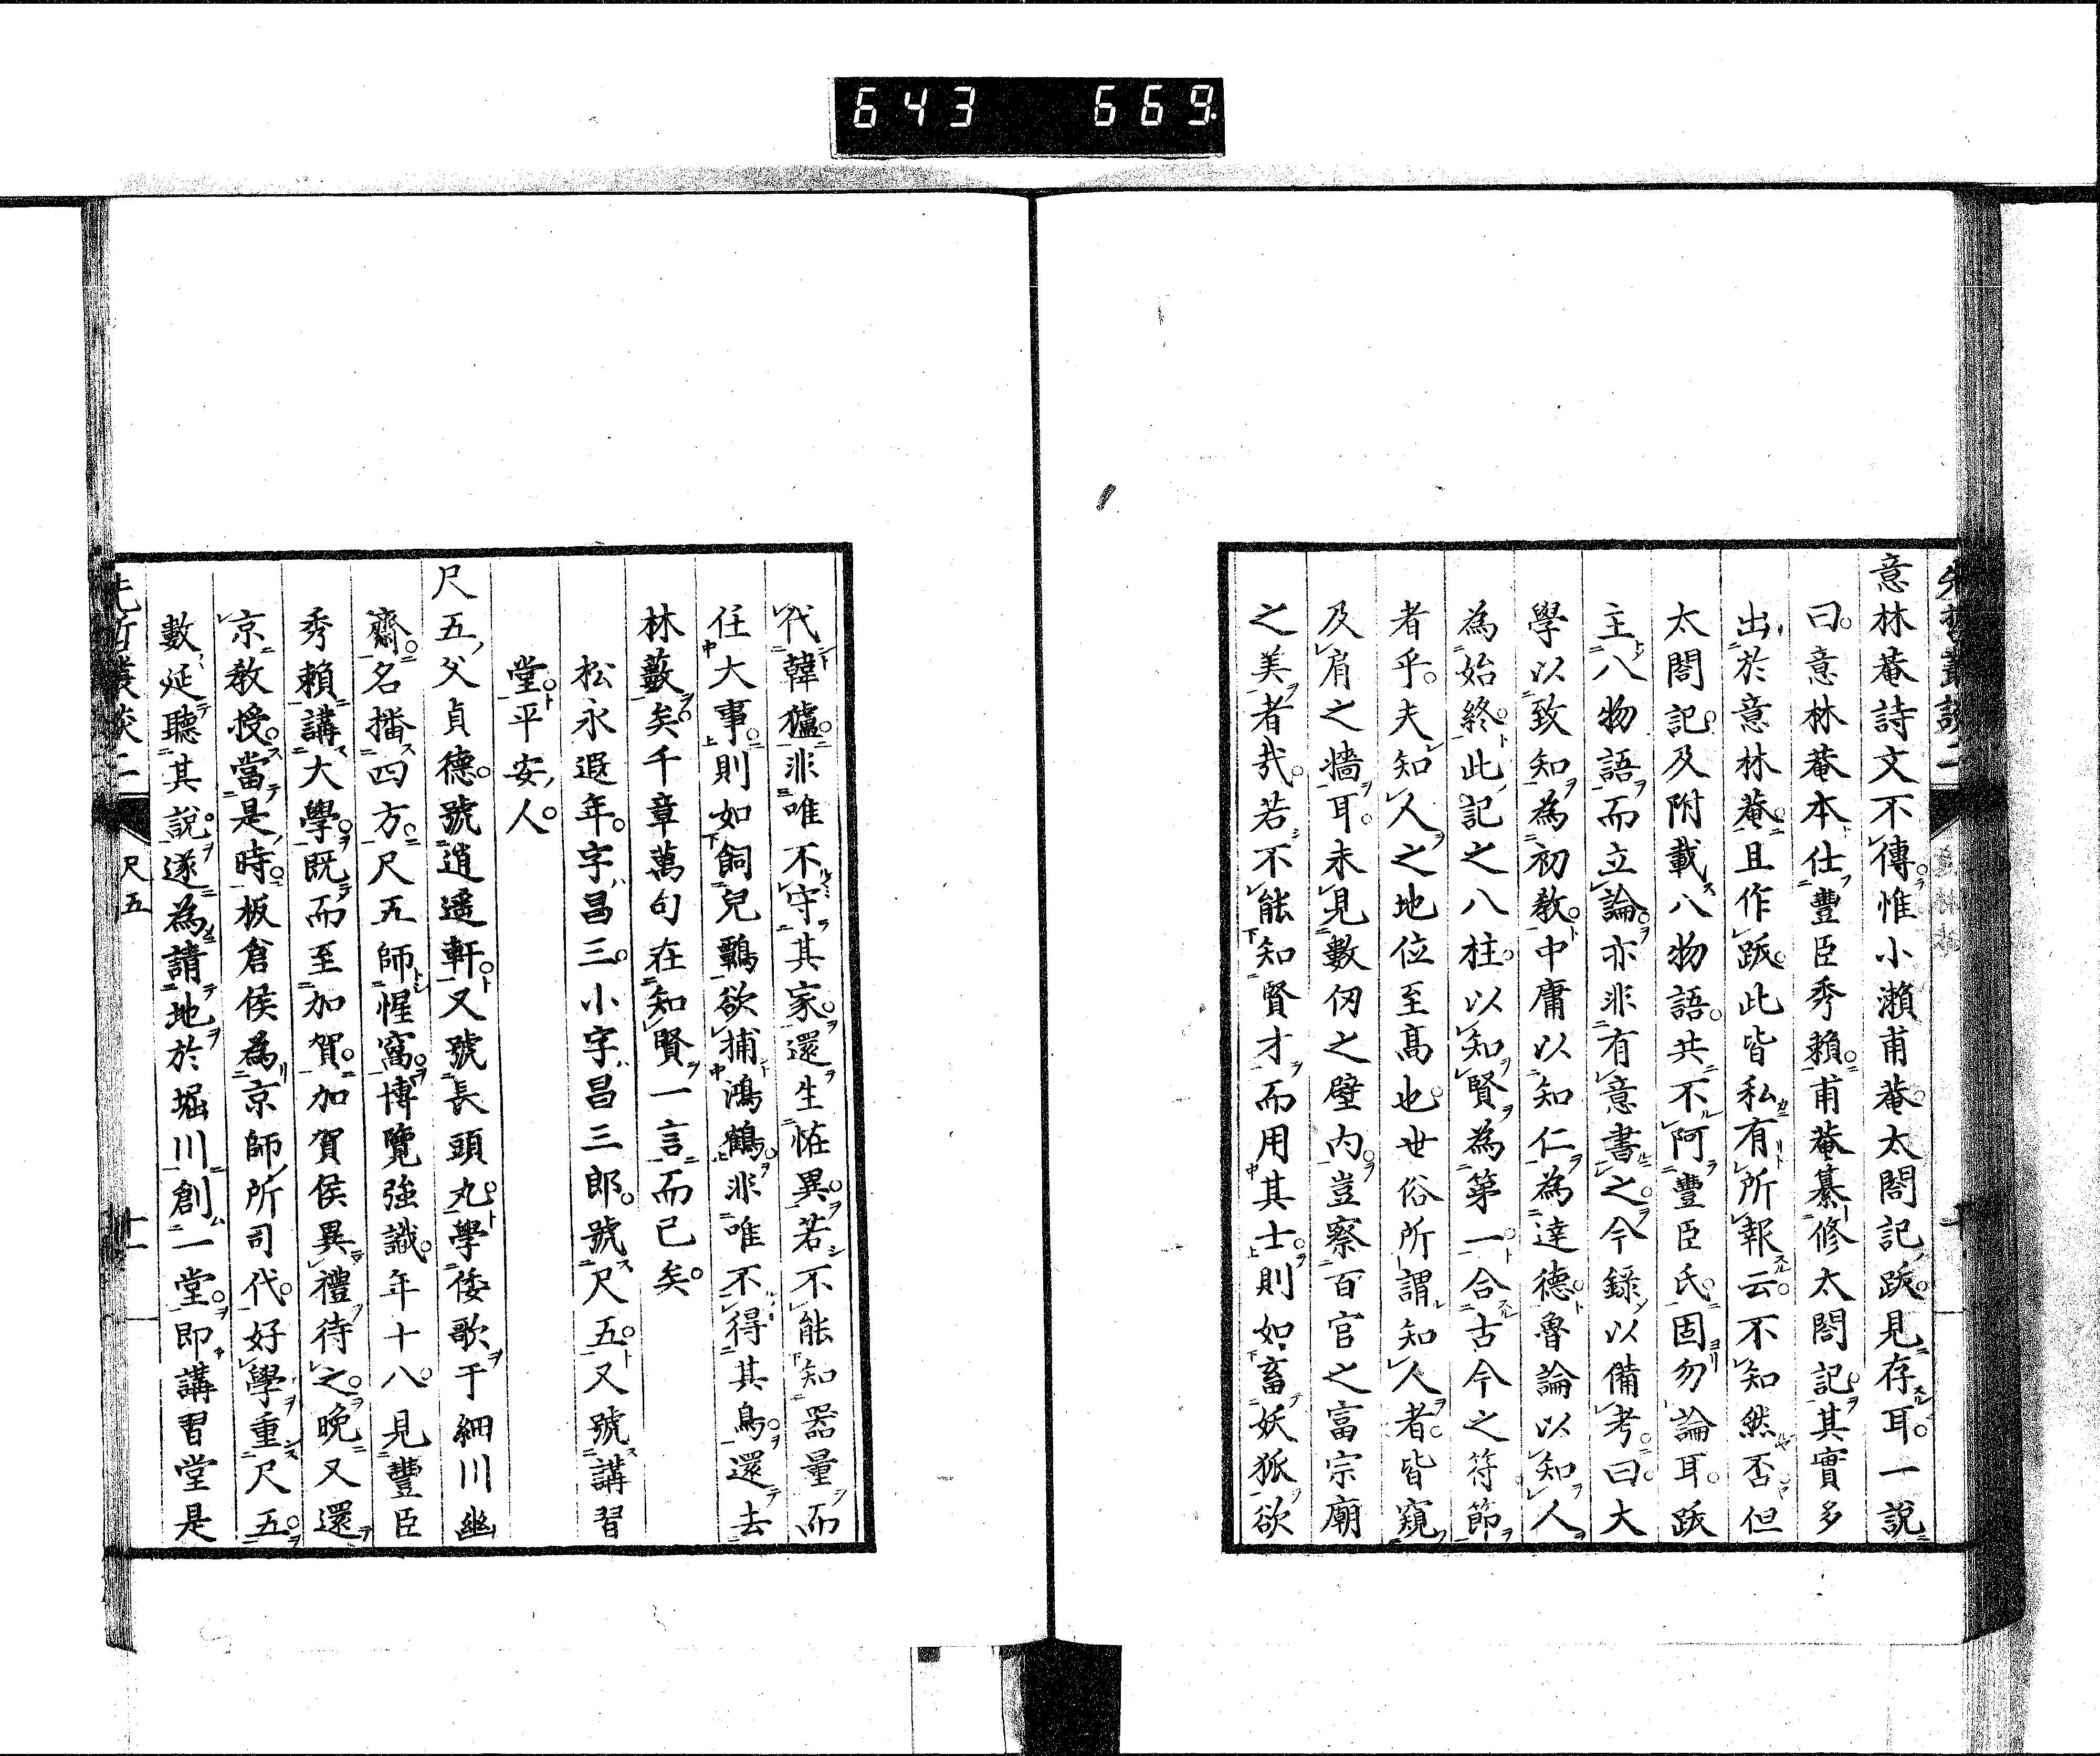 643 669.
意林菴詩文不傳惟小瀨甫菴太閤記跋見存耳一說
曰意林菴本仕豐臣秀賴甫菴纂修太閤記其實多
出於意林菴且作跋此皆私有所報云不知然否但
太閤記及附載八物語共不阿豐臣氏固勿論耳跋
主八物語而立論亦非有意書之今錄以備考曰大
學以致知為初教中庸以知仁為達德魯論以知人
為始終此記之八柱以知賢為第一合古今之符節
者乎夫知人之地位至高也世俗所謂知人者皆窺
及肩之墻耳未見數仞之壁内豈察百官之富宗廟
之美者哉若不能知賢才而用其士則如畜妖狐欲
代韓獹非唯不守其家還生恠異若不能知器量而
任大事則如飼兒鸇欲捕鴻鶴非唯不得其鳥還去
林藪矣千章萬句在知賢一言而已矣
松永遐年字昌三小字昌三郎號尺五又號講習
堂平安人
尺五父貞德號逍遥軒又號長頭丸學倭歌于細川幽
齋名播四方尺五師惺窩博覽強識年十八見豐臣
秀賴講大學既而至加賀加賀侯異禮待之晚又還
京教授當是時板倉侯為京師所司代好學重尺五
數延聽其說遂為請地於堀川創一堂即講習堂是
先哲叢談二
尺五
十一